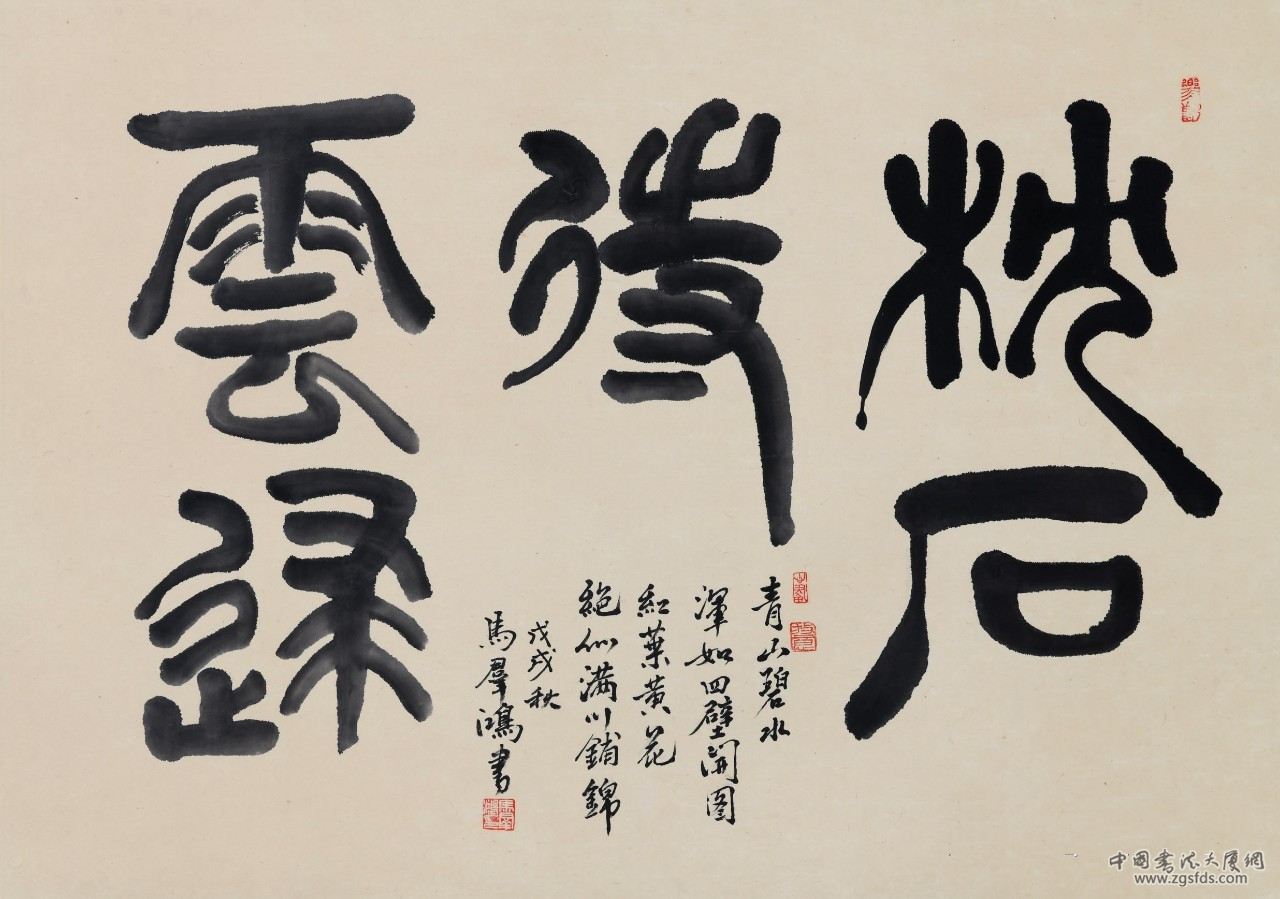 枕石
待
雲歸
青山碧水
渾如四壁開图
紅葉黄花
絶似满川鋪錦
戊戌秋
馬羣鴻書
中國書法大厦網
www.zgsfds.com